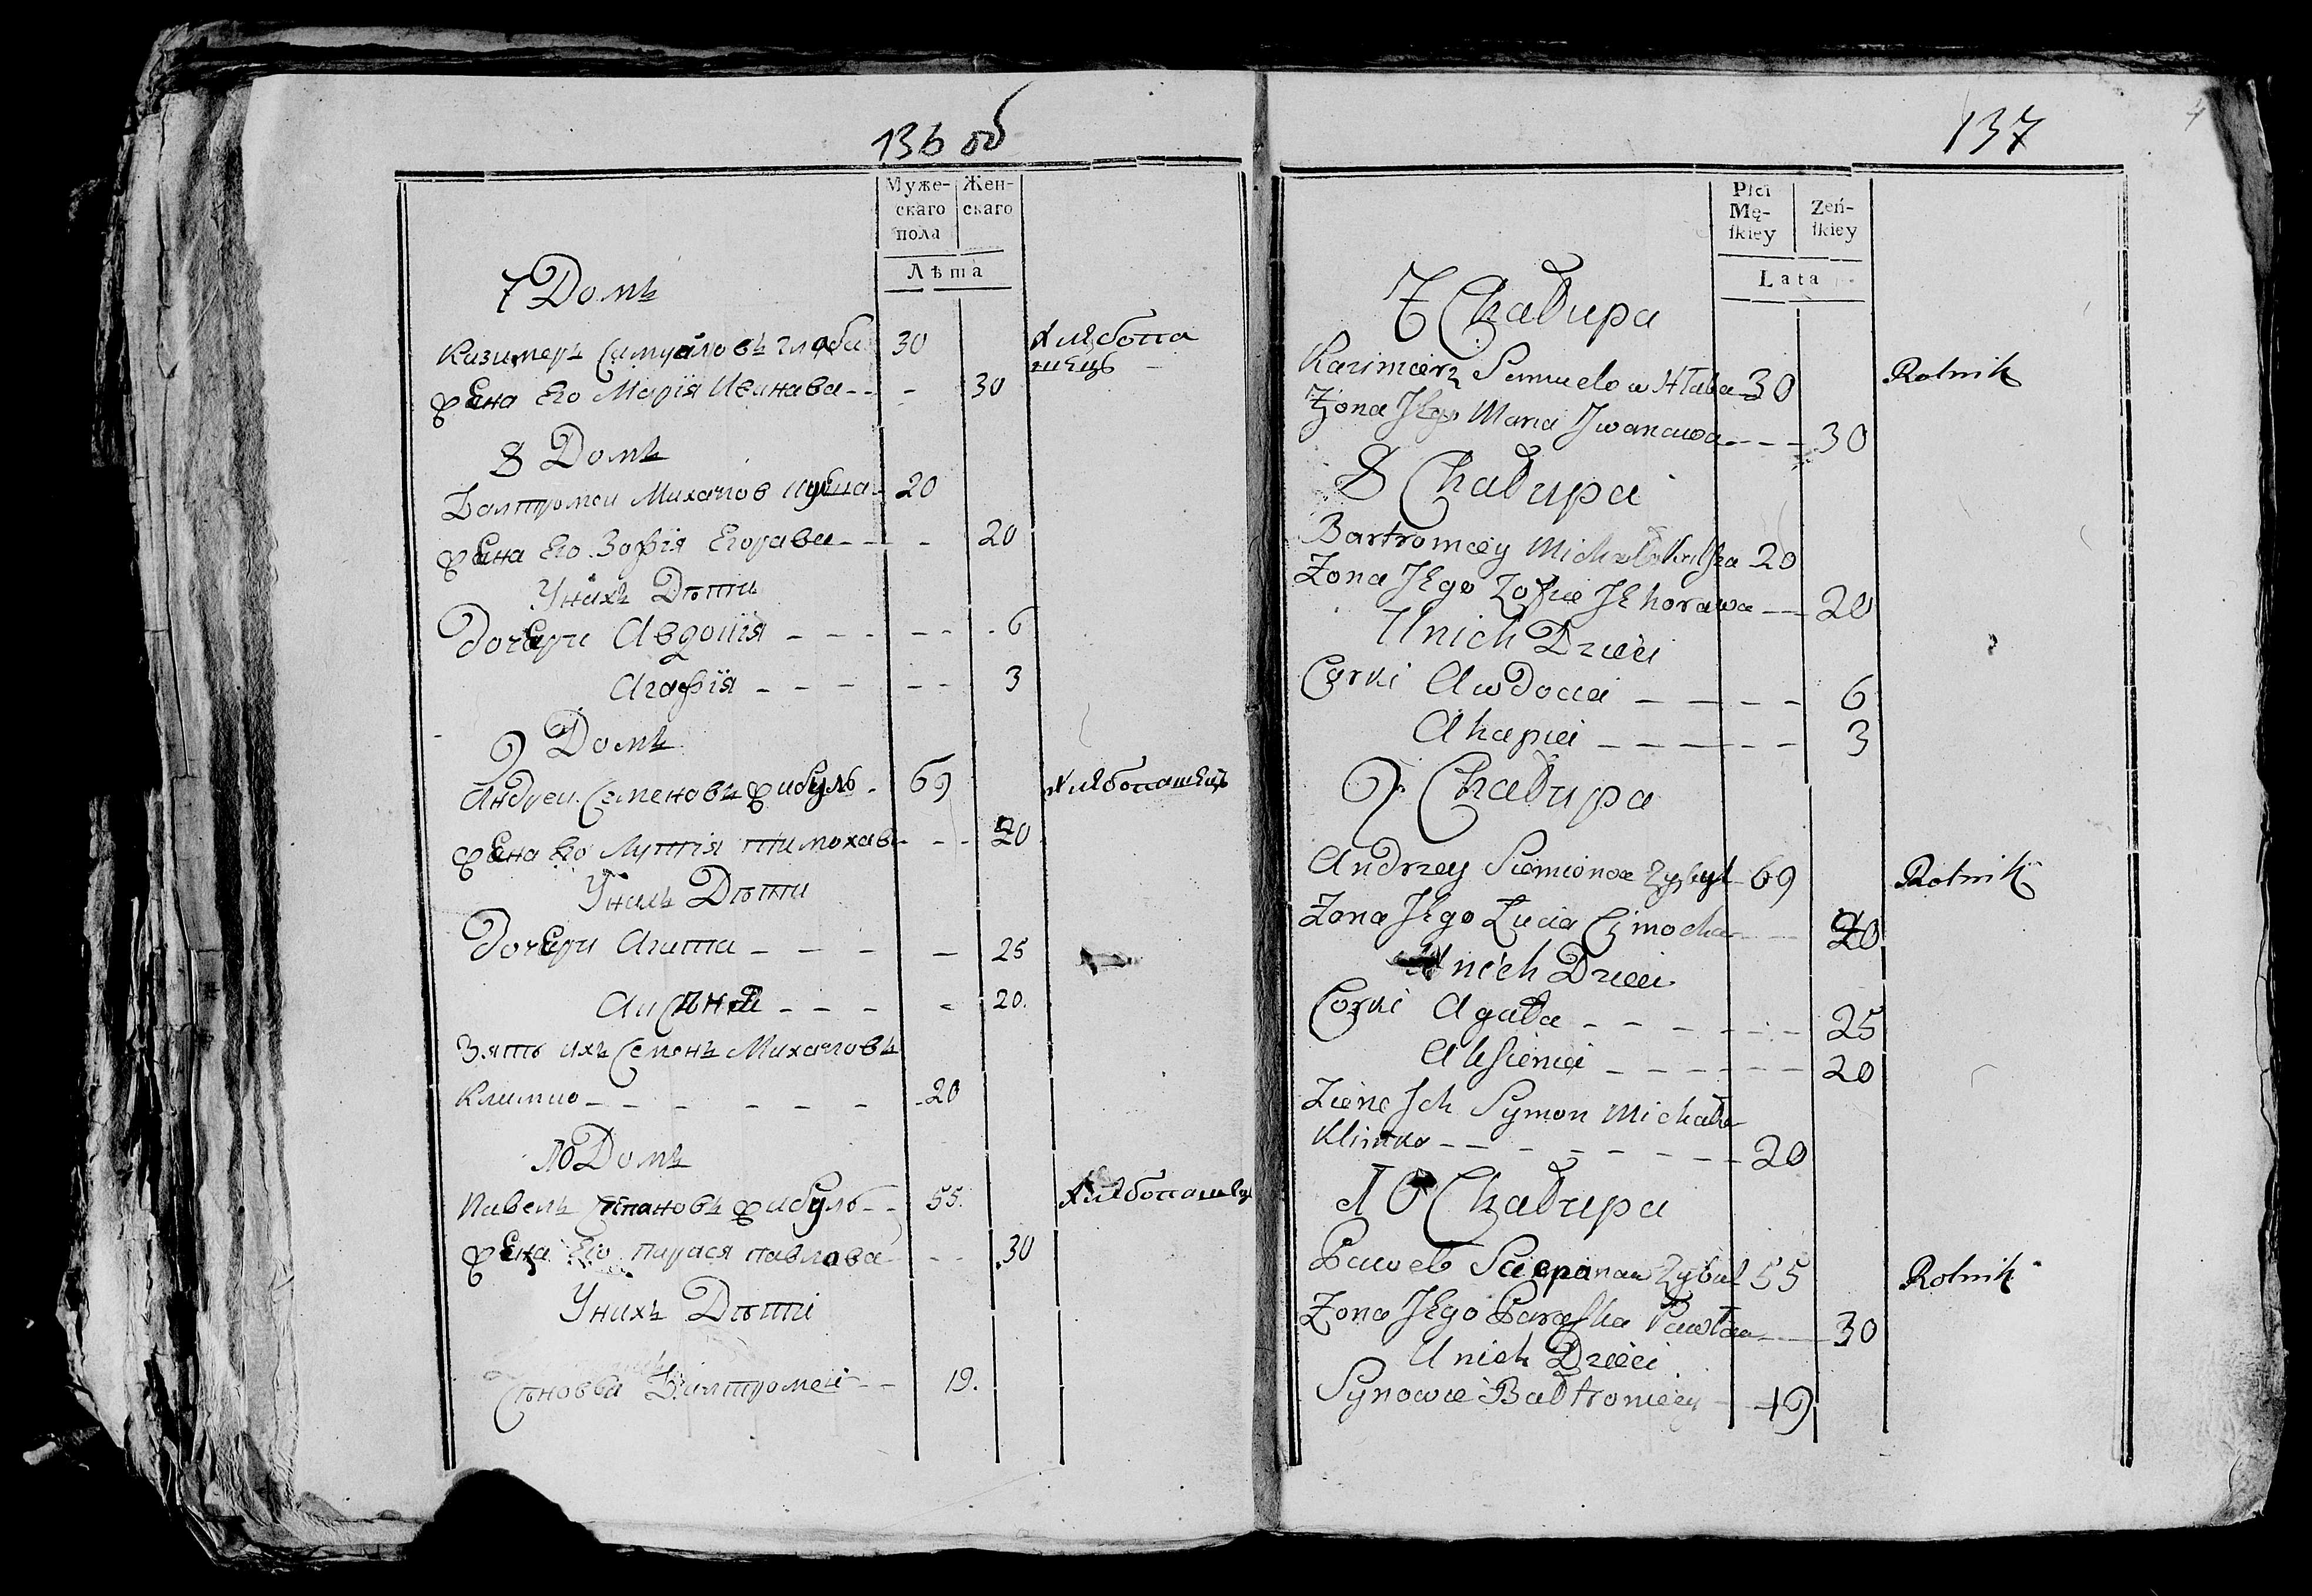 136 об
Муже-
скаго
пола
Жен-
скаго
Лѣта
7 Домъ
Казимеръ Самуйловъ Глаба 30
Хлѣбопа
шецъ
жена Его Марія Иванава - - - 30
8 Домъ
Балтромеи Михалов 20
жена Его Зофія Егорава - - - 20
Унихъ Дѣти
дочери Авдоція - - - - - 6
Агафія - - - - - 3
9 Домъ
Андреи Семеновъ жибуль - 69 Хлѣбопашецъ
жена Его Луція тимохава - - 20
Унихъ Дѣти
дочери Агата - - - - 25
- - - - 20.
Зять ихъ Семенъ Михаловъ
Климко - - - - - - 20
10 Домъ
Павелъ Степановъ жибуль - - 55. Хлѣбопашецъ
жена Его парася павлова - - 30
Унихъ Дѣти
Сыновья Балтромей - - 19.
137
4
Płci
Mę-
ſkiey
Zeń-
ſkiey
Lata
7 Chałupa
Kazimierz Samuelow Hłaba 30 Rolnik
Żona JEgo Maria Jwanawa - - - 30
8 Chałupa
Bartromiey 20
Zona JEgo Zofia JEhorawa - - 20
Unich Dzieci
Corki Awdocia - - - - 6
Ahapia - - - - - - 3
9 Chałupa
Andrzey Siemionow Zybul 69 Rolnik
Zona JEgo Łucia Cimocha - - 20
Unich Dzieci
Corki Agata - - - - - - 25
Akſienia - - - - - - 20
Zienc Jch Symon Michała
Klimko - - - - - - - - 20
10 Chałupa
Paweł Sciepanaw Zybul 55 Rolnik
Zona JEgo Paraſka Pawława - - 30
Unich Dzieci
Synowie Bałtromiey - 19